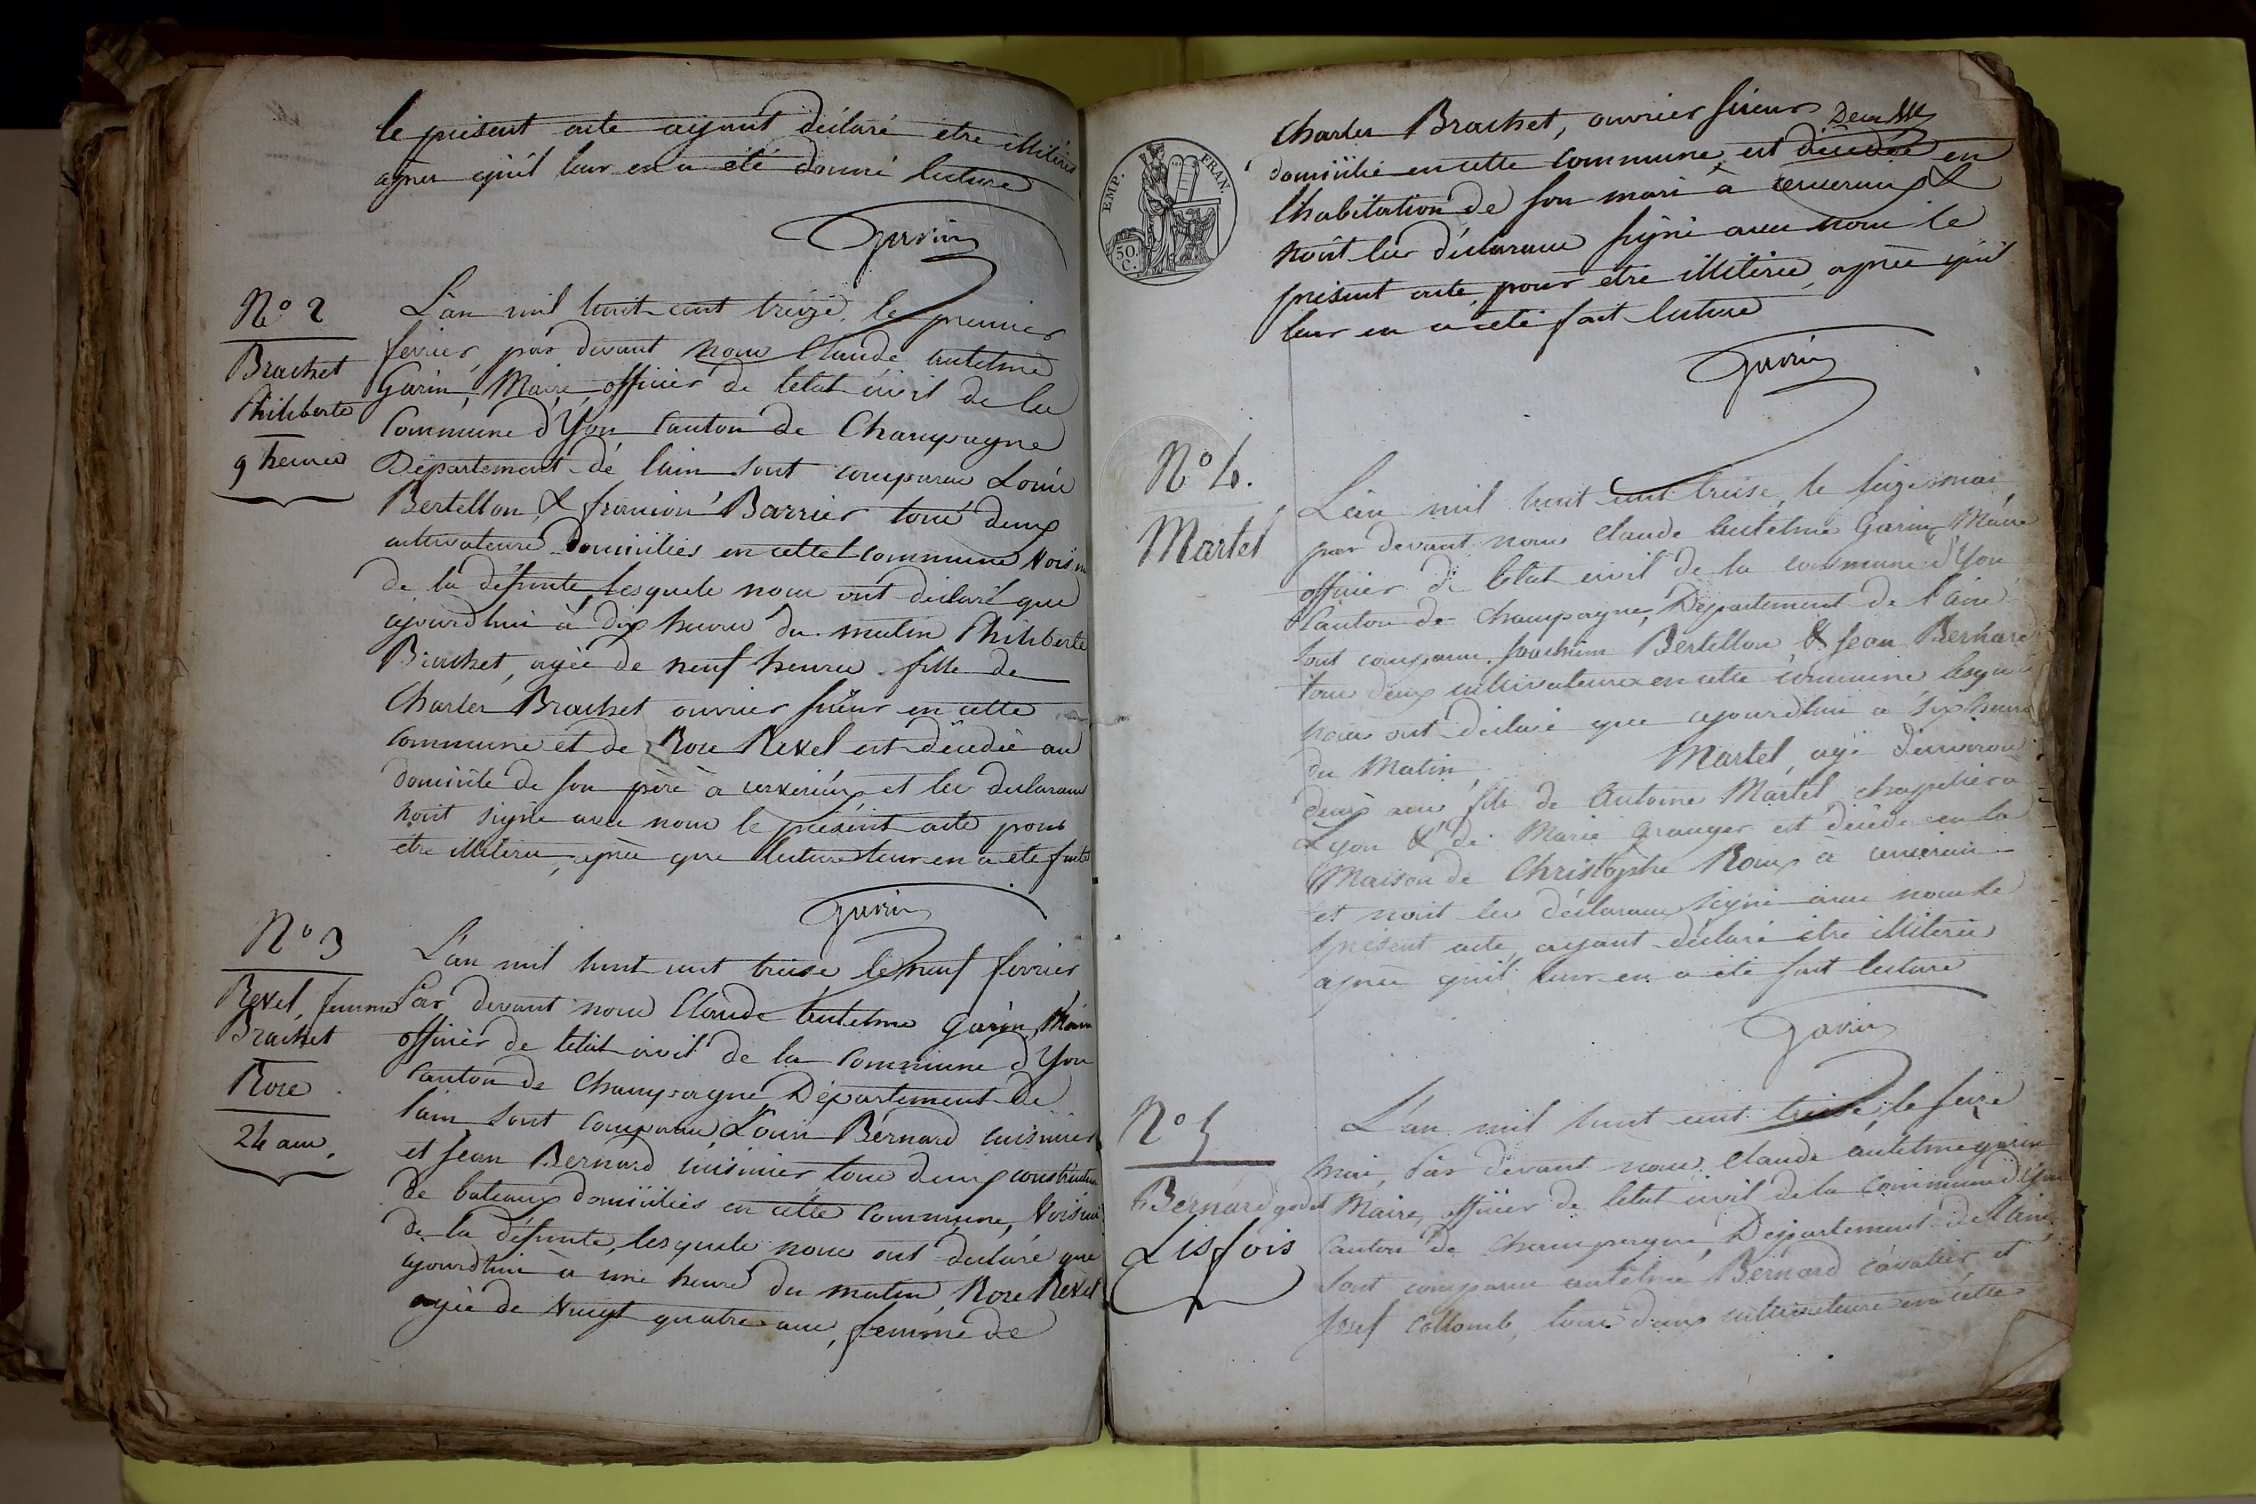 le présent acte ayant déclaré etre illitéres
après qu'il leur en a été donné lecture
Garin
N° 2
Brachet
Philiberte
9 heures
L'an mil huit cent treize, le premier
fevrier, par devant nous Claude Antelme
Garin, Maire officier de letat civil de la
Commune d'Yon Canton de Champagne
Département de lain sont comparus Louis
Bertellon & françois Barrier tous deux
cultivateurs domiciliés en cette Commune Voisins
de la défunte, lesquels nous ont déclaré que
ajourdhui à dix heures du matin Philiberte
Brachet, agée de neuf heures fille de
Charles Brachet ouvrier scieur en cette
Commune et de Rose Revel est décédée au
domicile de son père à cerverieux et les declarans
n'ont signé avec nous le présent acte pour
etre illitérés, après que lecture leur en a été faite
Garin
N° 3
Revel, femme
Brachet
Rose
24 ans.
L'an mil huit cent treise, le neuf fevrier
Par devant nous Claude Antelme Garin, Maire
officier de letat civil de la Commune d'Yon
Canton de Champagne, Département de
lain sont comparus, Louis Bernard cuisinier
et Jean Bernard cuisinier tous deux constructeurs
de bateaux domiciliés en cette Commune, Voisins
de la défunte, lesquels nous ont declaré que
ajourdhui à une heure du matin, Rose Revel
agée de Vingt quatre ans, femme de
EMP. FRAN.
50.
C.
Charles Brachet, ouvrier scieur
domicilié en cette Commune, est décédée en
l'habitation de son mari à cerverieux &
n'ont les déclarans signé avec nous le
présent acte, pour etre illitérés, après qu'il
leur en a été fait lecture
Garin
N° 4.
Martel
L'an mil huit cent treise, le seize mai
par devant nous Claude Antelme Garin, Maire
officier de letat civil de la commune d'Yon
Canton de Champagne, Département de l'ain
sont comparus Joachim Bertellon & Jean Bernard
tous deux cultivateurs en cette commune lesquels
nous ont déclaré que ajourdhui à six heures
du Matin, Martel, agé d'environ
deux ans fils de Antoine Martel chapelier à
Lyon & de Marie Granger est décédé en la
Maison de Christophe Roux à cerverieu
et n'ont les déclarans signé avec nous le
présent acte, ayant déclaré etre illitérés
après qu'il leur en a été fait lecture
Garin
N° 5
Bernard godet
Lisfois
L'an mil huit cent treise, le seize
mai, Par devant nous Claude antelme garin
Maire, officier de letat civil de la commune d'Yon
Canton de Champagne, Département de l'ain
sont comparus antelme Bernard cavalier et
Josef Collomb, tous deux cultivateurs en cette